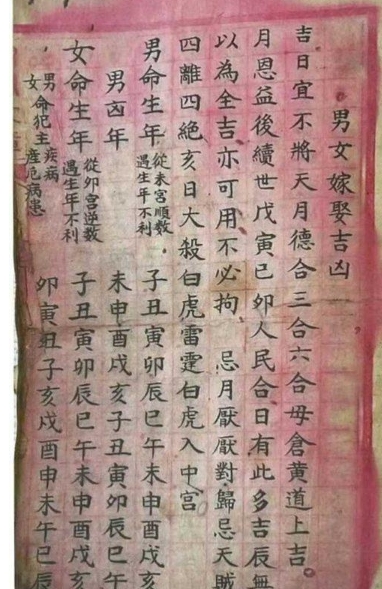 男女嫁娶吉凶
吉日宜不將天月德合三合六合母倉黃道上吉
月恩益後續世戊寅己卯人民合日有此多吉辰無
以為全吉亦可用不必拘 忌月厭厭對歸忌天賊
四離四絕亥日大殺白虎雷霆白虎入中宮
男命生年 從未宮順數 遇生年不利 子丑寅卯辰巳午未申酉戌亥
男凶年 未申酉戌亥子丑寅卯辰巳午
女命生年 從卯宮逆數 遇生年不利 子丑寅卯辰巳午未申酉戌亥
男女命犯主 疾病 產厄病患 卯寅丑子亥戌酉申未午巳辰